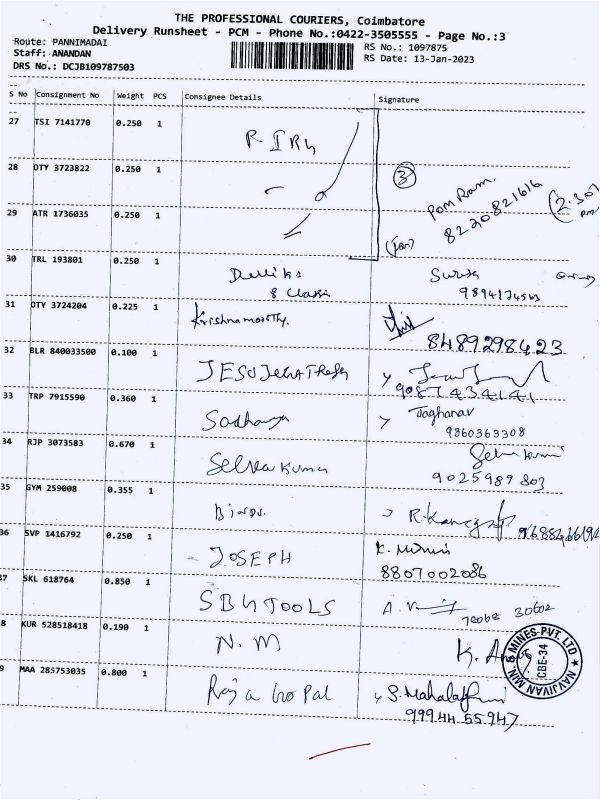 THE PROFESSIONAL COURIERS, Coimbatore
Delivery Runsheet - PCM - Phone No.:0422-3505555 - Page No.:3
Route: PANNIMADAI
RS No.: 1097875
Staff: ANANDAN
RS Date: 13-Jan-2023
DRS No.: DCJB109787503
S No Consignment No Weight PCS Consignee Details Signature
27 TSI 7141770 0.250 1
28 OTY 3723822 0.250 1 3
Pom Ram.
8220821616
2.30
29 ATR 1736035 0.250 1
30 TRL 193801 0.250 1
31 OTY 3724204 0.225 1 Krishnamoorthy.
8489298423
32 BLR 840033500 0.100 1
9087434141
33 TRP 7915590 0.360 1 Jaghanav
9360363308
34 RJP 3073583 0.670 1 Selva Kumar
9025989803
35 GYM 259008 0.355 1
36 SVP 1416792 0.250 1 JOSEPH
8807002086
37 SKL 618764 0.850 1 SBG TOOLS
8 KUR 528518418 0.190 1 N.M
NAVJIVAN MIN. & MINES-PVT. LTD
CBE-34
9 MAA 285753035 0.800 1 Raja Gopal
99944 55947